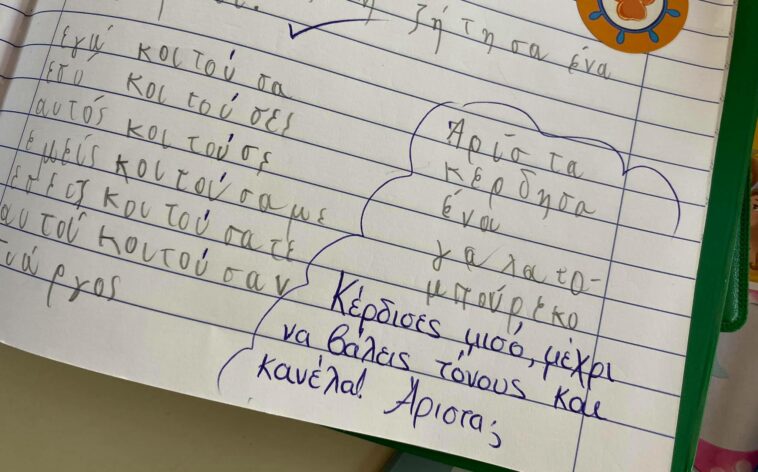 ζή τη σα ένα
εγώ κοιτού σα
εσυ κοι τού σες
αυτός κοι τού σε
εμείς κοι τού σα με
εσεις κοι τού σα τε
αυτοί κοιτού σαν
Άρισ τα
κερ δησα
ένα
γα λα το-
μπούρεκο
Κέρδισες μισό, μέχρι
να βάλεις τόνους και
κανέλα! Άριστα;